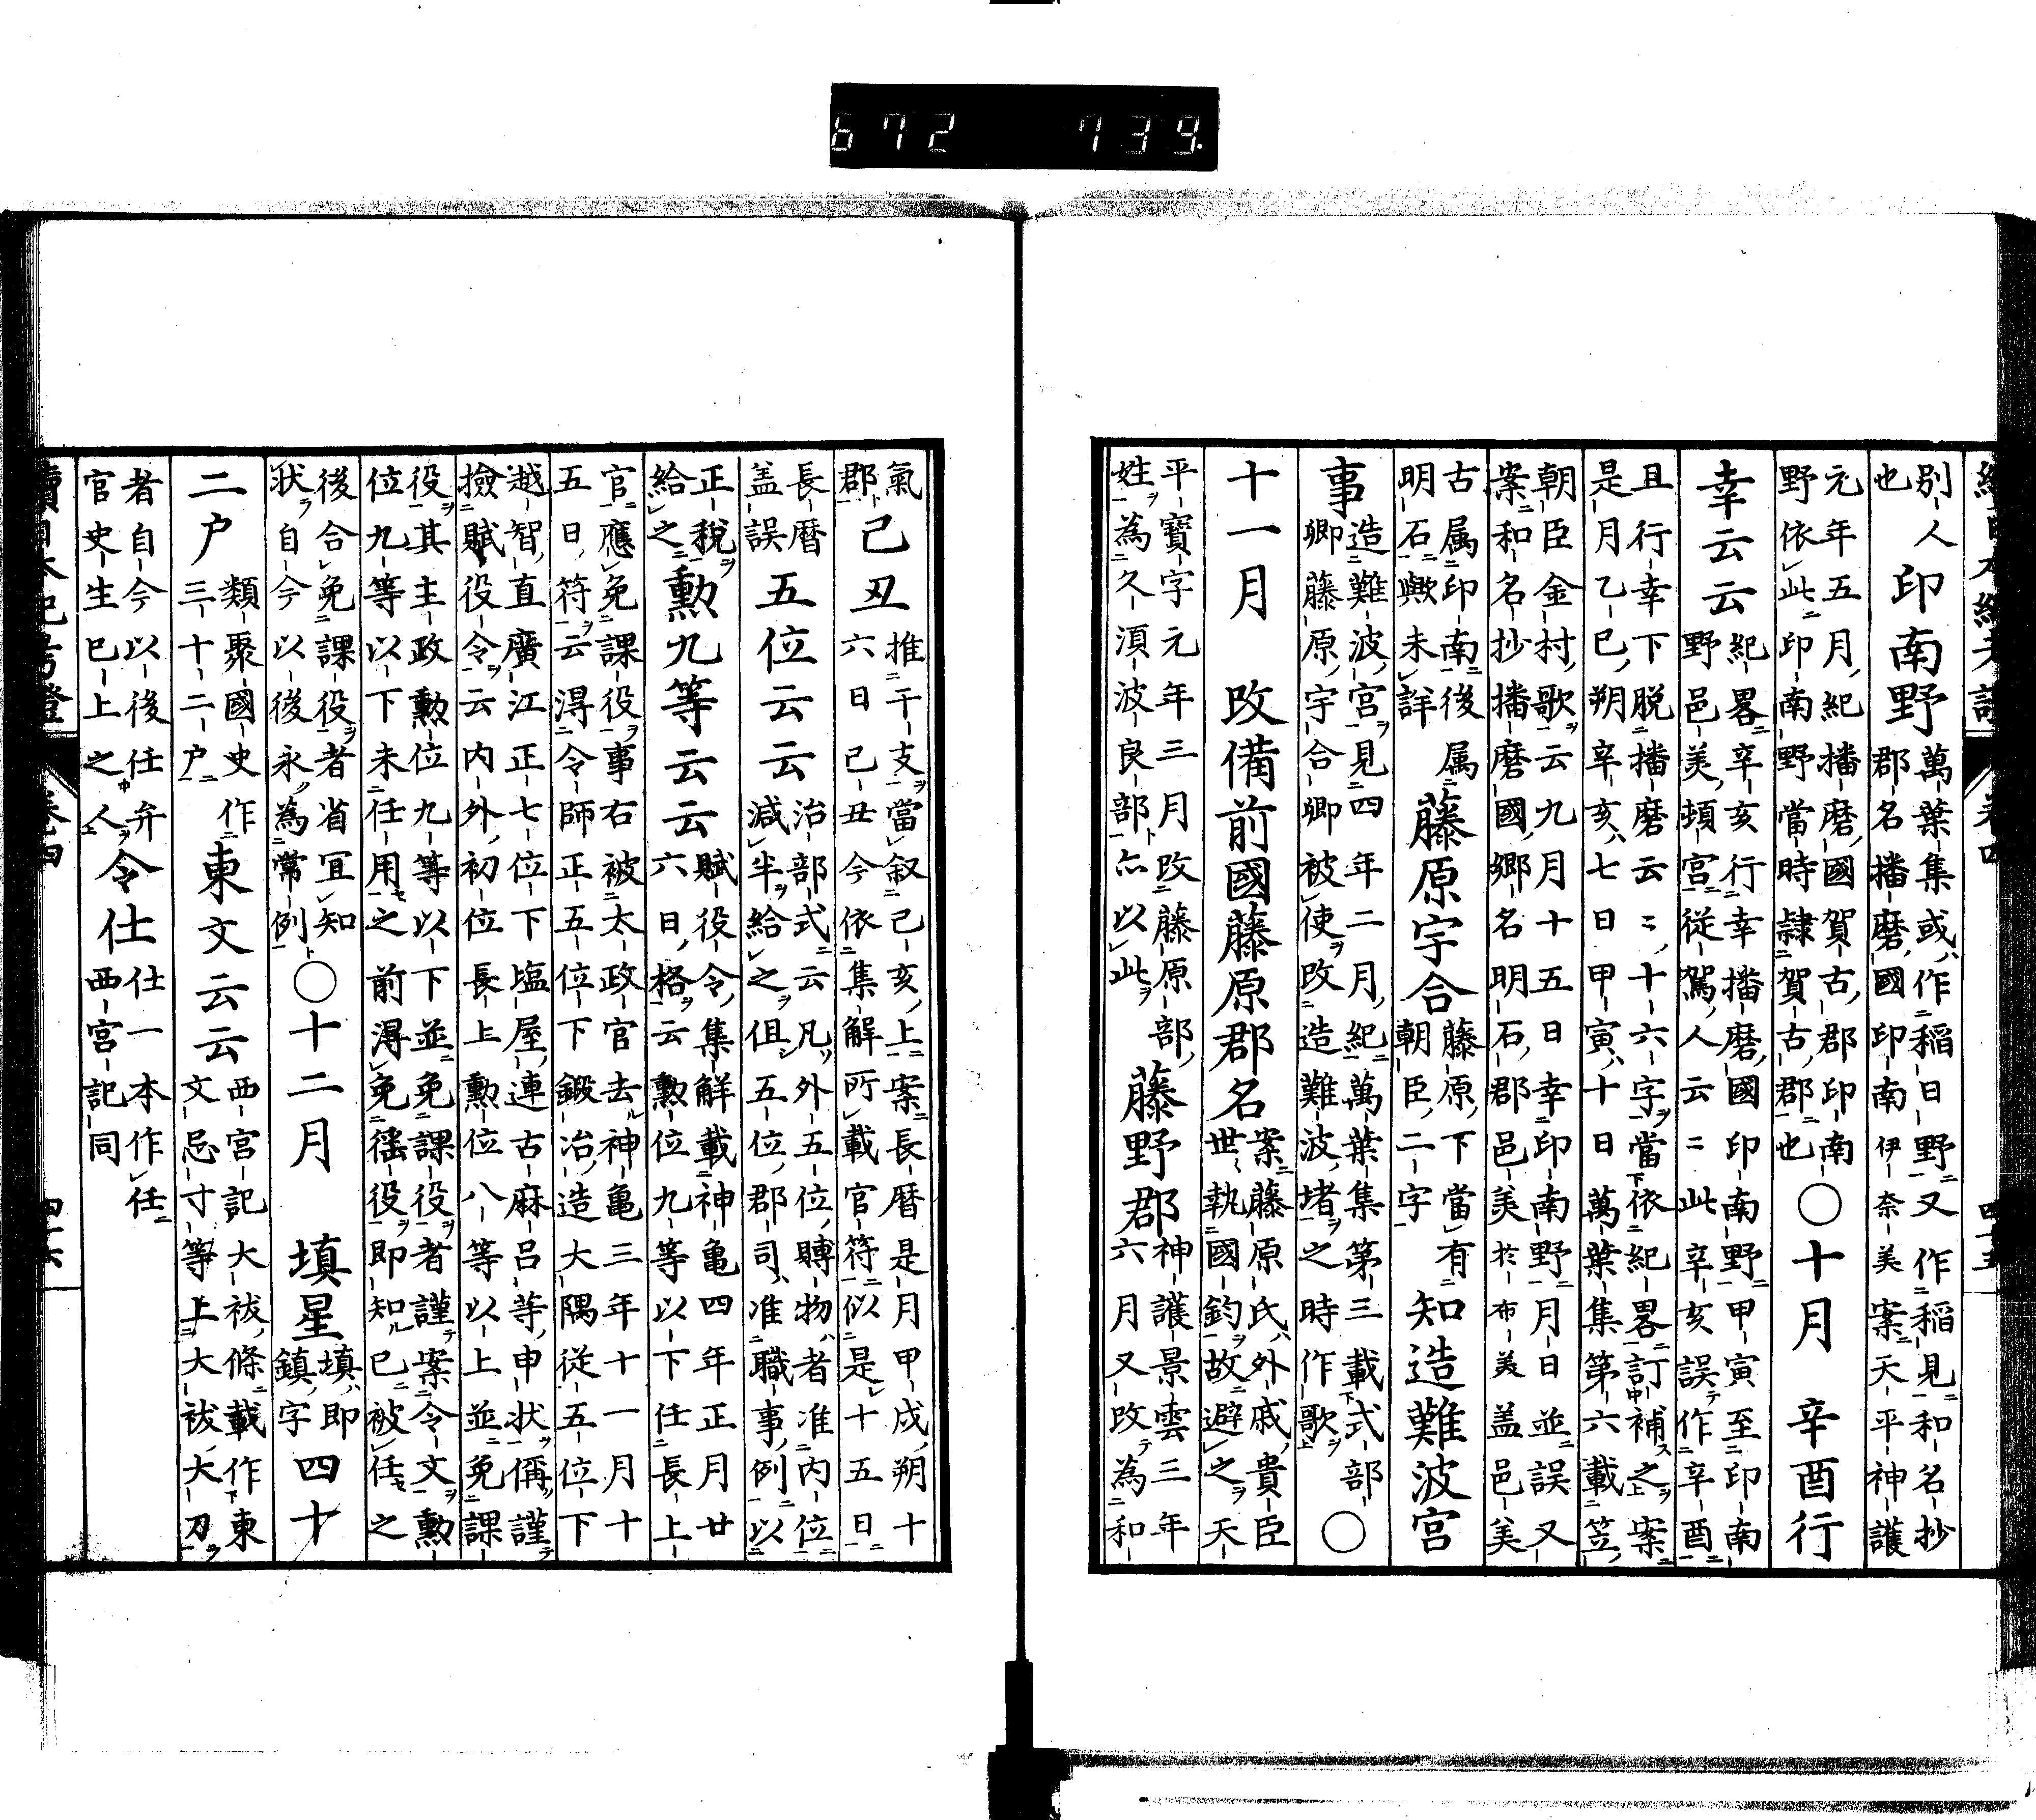 672 739
別人印南野萬葉集或作稲日野又作稲見和名抄
也　郡名播磨國印南伊奈美案天平神護
元年五月紀播磨國賀古郡印南
野依此印南野當時隷賀古郡也〇十月　辛酉行
幸云云紀畧辛亥行幸播磨國印南野甲寅至印南
野邑美頓宮從駕人云〻此辛亥誤作辛酉
且行幸下脱播磨云〻十六字當依紀畧訂補之案
是月乙巳朔辛亥七日甲寅十日萬葉集第六載笠
朝臣金村歌云九月十五日幸印南野月日並誤又
案和名抄播磨國郷名明石郡邑美於布美盖邑美
古属印南後属
明石歟未詳　藤原宇合藤原下當有
朝臣二字　知造難波宮
事造難波宮見四年二月紀萬葉集第三載式部
卿藤原宇合卿被使改造難波堵之時作歌〇
十一月　改備前國藤原郡名案藤原氏外戚貴臣
世執國鈞故避之天
平寳字元年三月改藤原部
姓為久須波良部亦以此　藤野郡神護景雲三年
六月又改為和
氣
郡　己丑推干支當叙己亥上案長暦是月甲戌朔十
六日己丑今依集解所載官符似是十五日
長暦
盖誤　五位云云治部式云凡外五位賻物者准内位
減半給之但五位郡司准職事例以
正税
給之　勲九等云云賦役令集解載神亀四年正月廿
六日格云勲位九等以下任長上
官應免課役事右被太政官去神亀三年十一月十
五日符云得令師正五位下鍛冶造大隅從五位下
越智直廣江正七位下塩屋連古麻呂等申状偁謹
撿賦役令云内外初位長上勲位八等以上並免課
役其主政勲位九等以下並免課役者謹案令文勲
位九等以下未任用之前得免徭役即知已被任之
後合免課役者省冝知
状自今以後永為常例〇十二月　填星填即
鎮字　四十
二户類聚國史作
三十二户　東文云云西宮記大祓條載作東
文忌寸等上大祓大刀
者自今以後任弁
官史生已上之人令仕仕一本作任
西宮記同